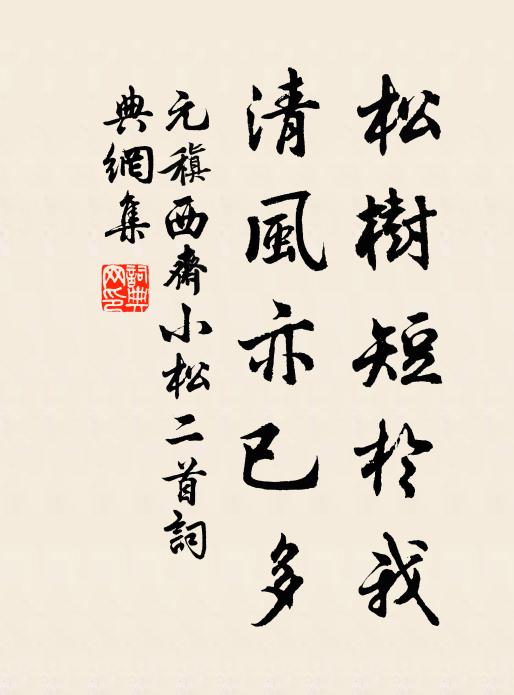 松樹短於我
清風亦已多
元稹西齋小松二首詞
典網集
詞典
网印